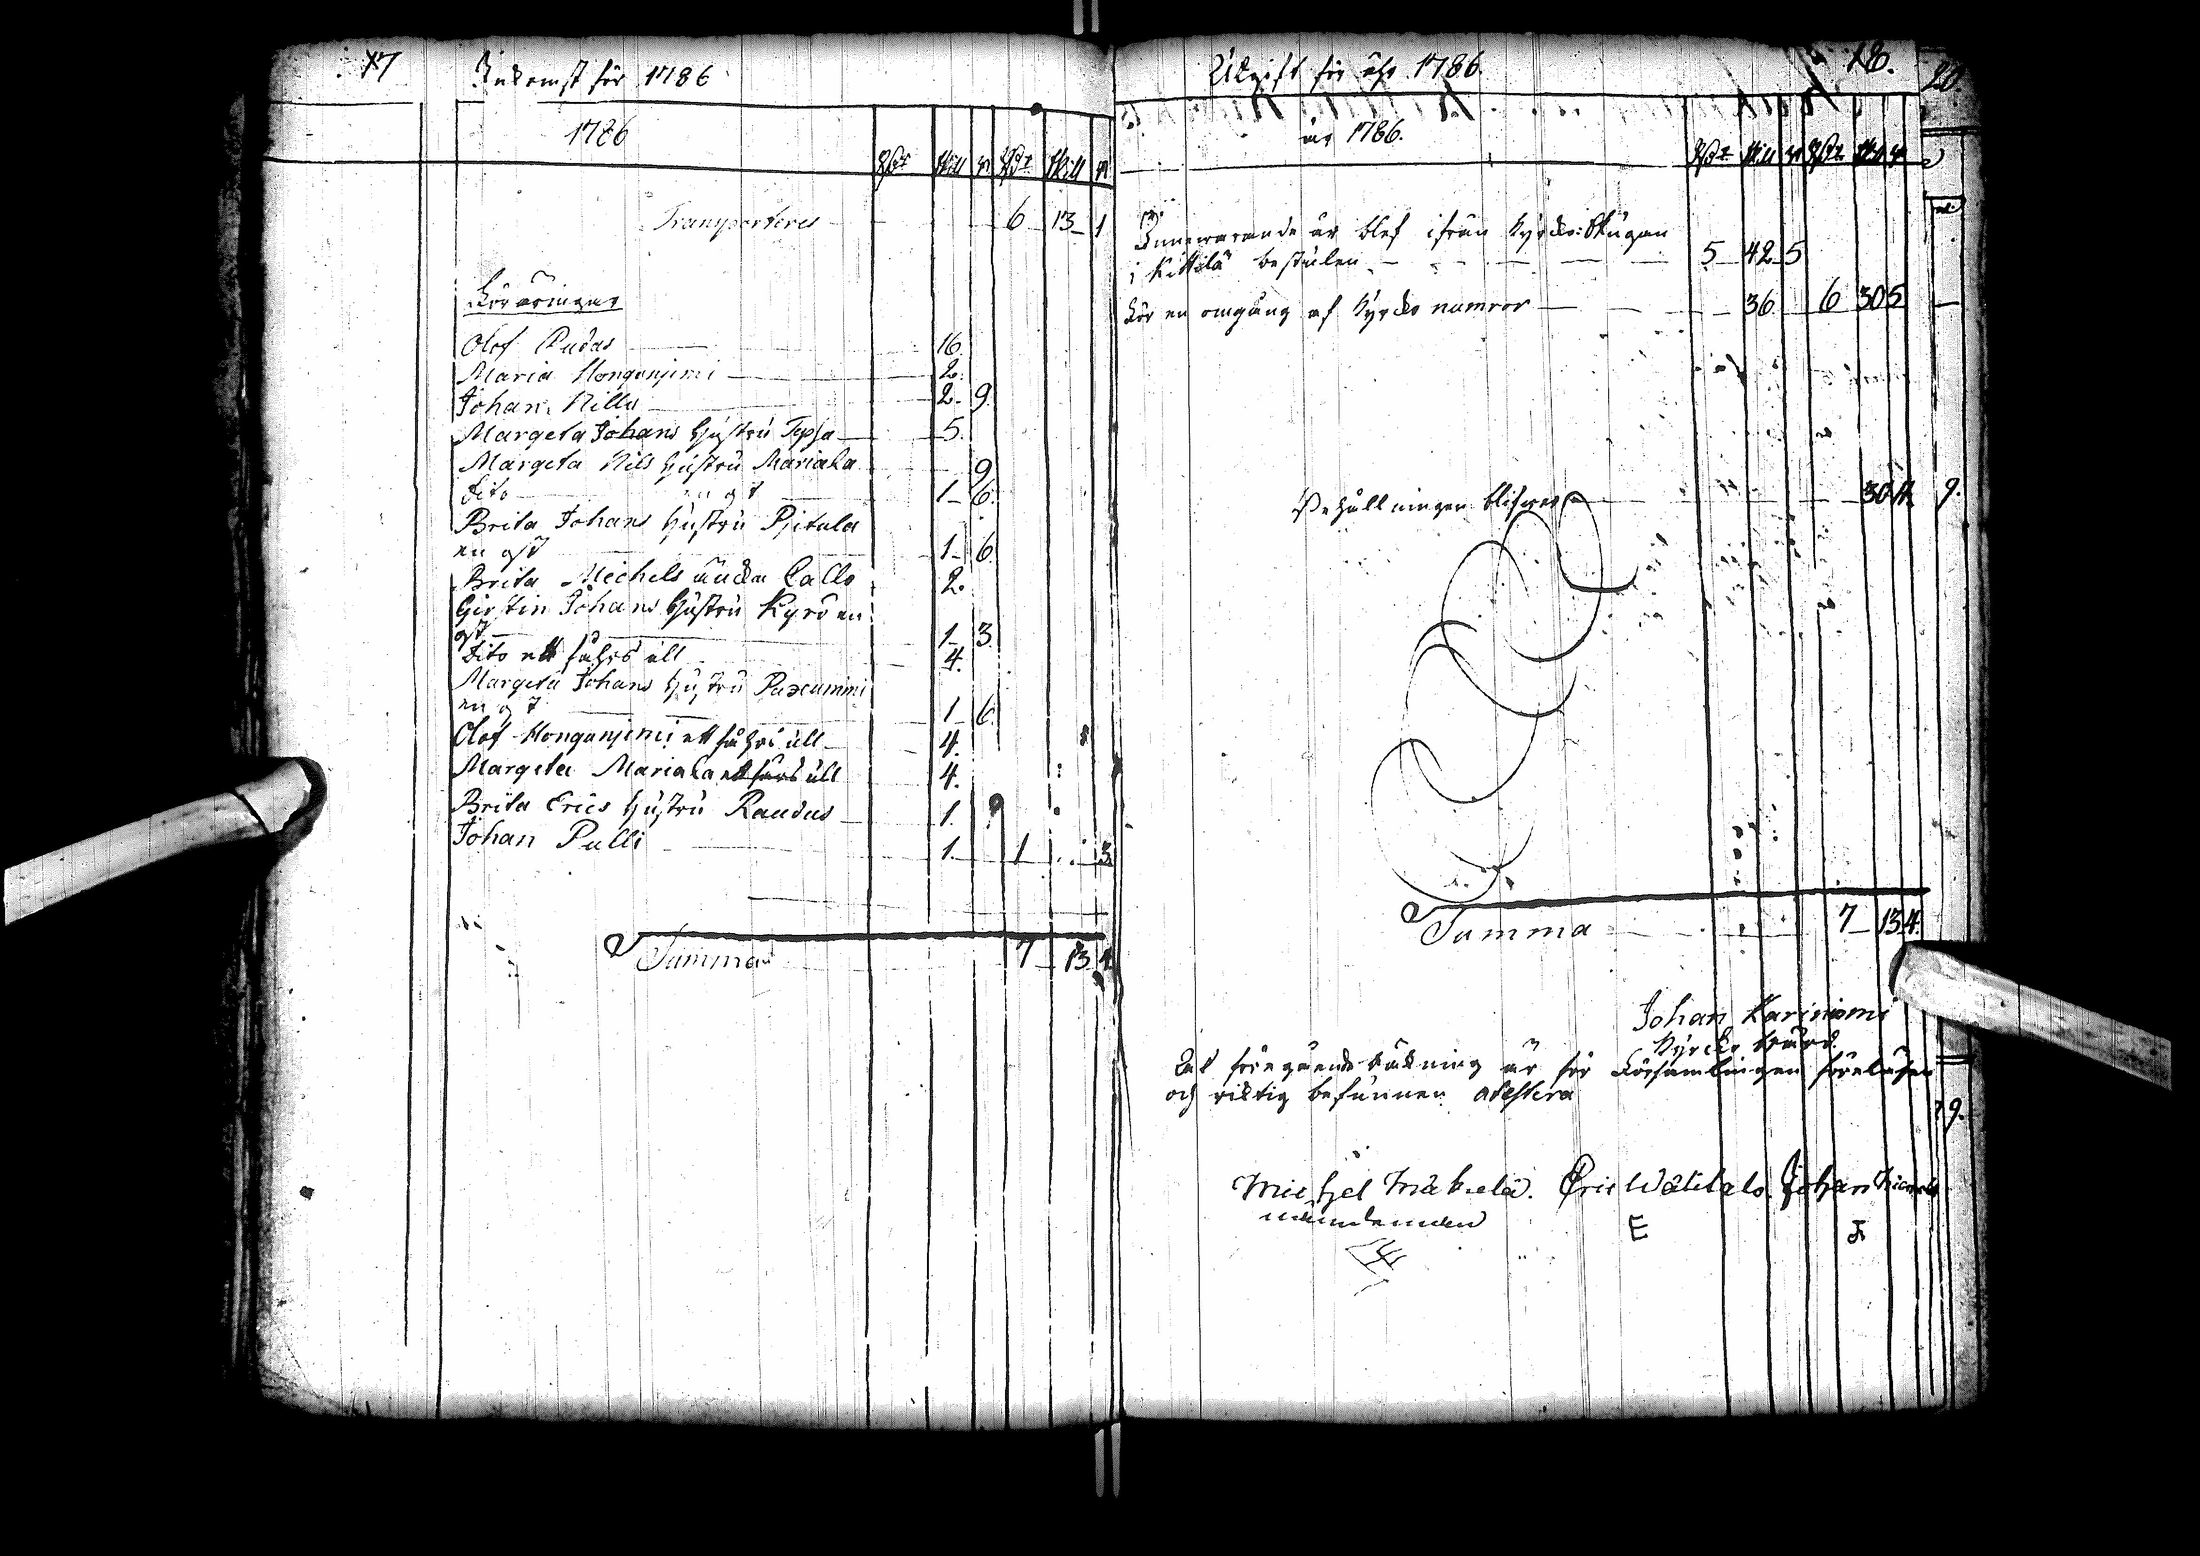 17
Inkomst för 1786
1786
Rdr Skill r Rdr Skill r
Transporteres 6 13 1
Föräringar
Olof Rudas 16.
Maria Honganjemi 2.
Johan Nilla 2. 9.
Margeta Johans Hustru Tepsa 5.
Margeta Nils Hustru Mariala 9
Dito en ost 1 6.
Brita Johans Hustru Pjetula
en ost 1 6.
Brita Michels änckia Lallo 2.
Girstin Johans Hustru Kyrö en
ost 1 3.
Dito ett fåhrs ull 4.
Margeta Johans Hustru
en ost 1 6
Olof Honganjemi ett fåhrs ull 4.
Margeta Mariala ett fårs ull 4.
Brita Erics Hustru Raudus 1. 9
Johan Pulli 1. 1 3.
Summa 7 13 4
18.
Utgift för åhr 1786.
år 1786.
Rdr Skill r Rdr Skill r
Innewarande år blef ifrån Kyrcko: Stugan
i Kittilä bestulen 5 42 5
För en omgång af Kyrcko numror 36 6 30 5
Behållningen blifwer 30 11.
Summa 7 13 4.
Johan Kariniemi
Kyrcko Wärd.
Det föregående Räkning är för Församlingen föreläsen
och riktig befunnen atestera
Michel Mäkelä. Eric Wälitalo. Johan
nämdeman E
20.
9.
9.